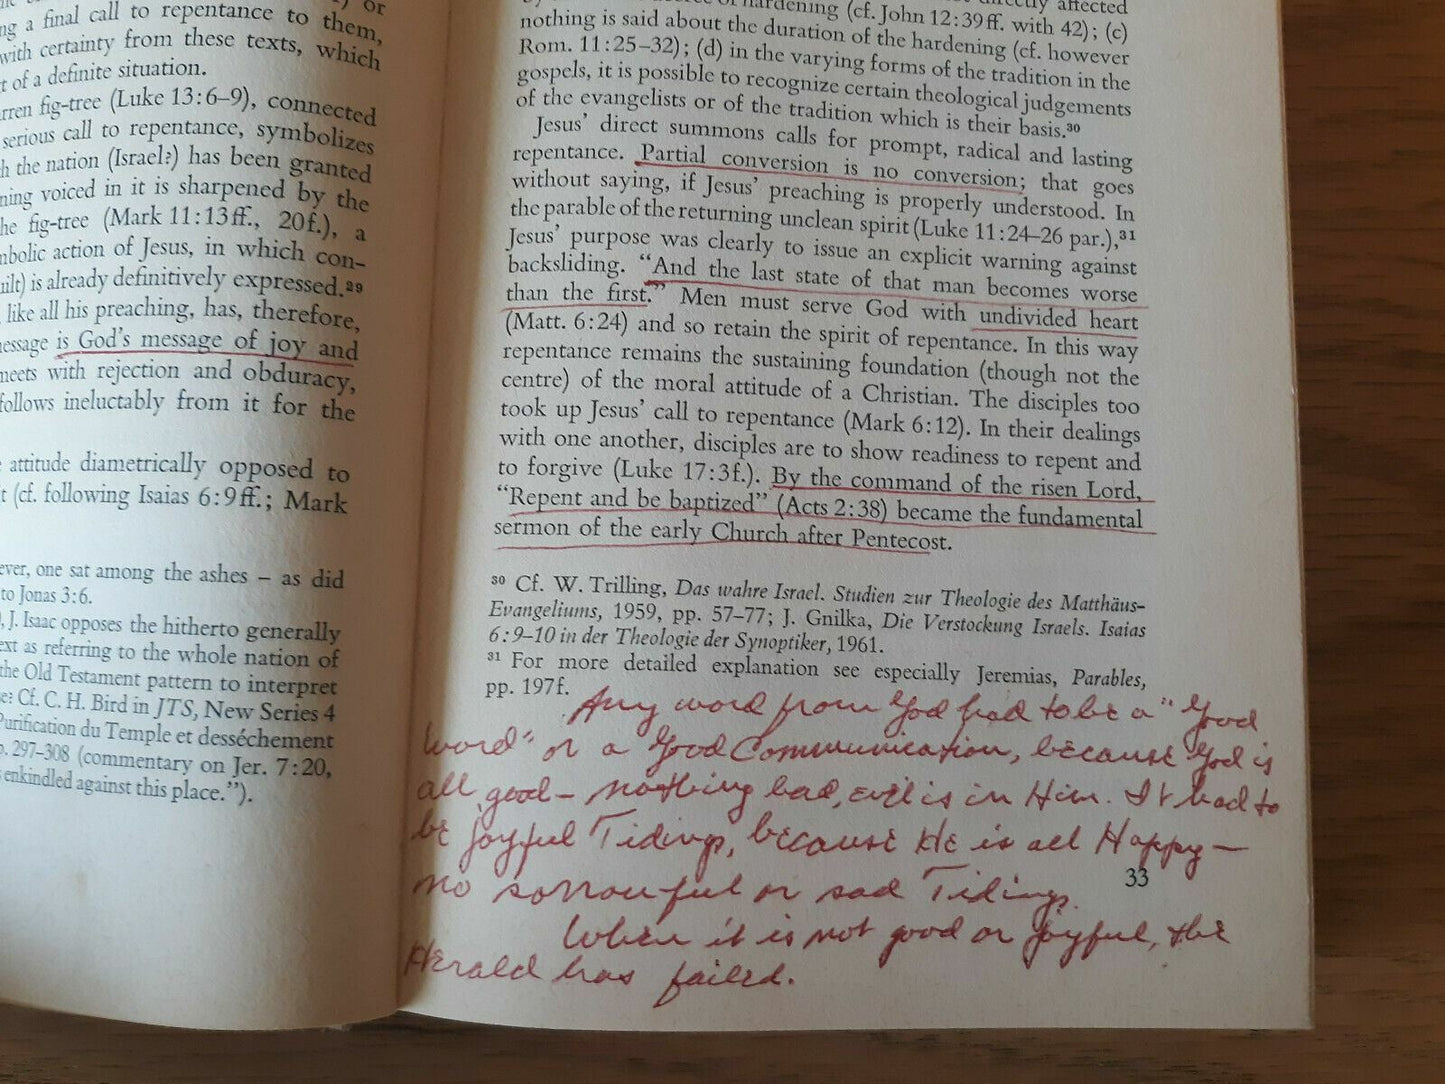 or
a final call to repentance to them,
with certainty from these texts, which
of a definite situation.
fig-tree (Luke 13:6–9), connected
serious call to repentance, symbolizes
the nation (Israel?) has been granted
voiced in it is sharpened by the
fig-tree (Mark 11:13ff., 20f.), a
action of Jesus, in which con-
is already definitively expressed.²⁹
like all his preaching, has, therefore,
is God's message of joy and
meets with rejection and obduracy,
follows ineluctably from it for the
attitude diametrically opposed to
(cf. following Isaias 6:9ff.; Mark
one sat among the ashes – as did
to Jonas 3:6.
J. Isaac opposes the hitherto generally
as referring to the whole nation of
the Old Testament pattern to interpret
Cf. C. H. Bird in JTS, New Series 4
Purification du Temple et desséchement
297–308 (commentary on Jer. 7:20,
enkindled against this place.").
affected
hardening (cf. John 12:39ff. with 42); (c)
nothing is said about the duration of the hardening (cf. however
Rom. 11:25–32); (d) in the varying forms of the tradition in the
gospels, it is possible to recognize certain theological judgements
of the evangelists or of the tradition which is their basis.³⁰
Jesus' direct summons calls for prompt, radical and lasting
repentance. Partial conversion is no conversion; that goes
without saying, if Jesus' preaching is properly understood. In
the parable of the returning unclean spirit (Luke 11:24–26 par.),³¹
Jesus' purpose was clearly to issue an explicit warning against
backsliding. “And the last state of that man becomes worse
than the first.” Men must serve God with undivided heart
(Matt. 6:24) and so retain the spirit of repentance. In this way
repentance remains the sustaining foundation (though not the
centre) of the moral attitude of a Christian. The disciples too
took up Jesus' call to repentance (Mark 6:12). In their dealings
with one another, disciples are to show readiness to repent and
to forgive (Luke 17:3f.). By the command of the risen Lord,
“Repent and be baptized” (Acts 2:38) became the fundamental
sermon of the early Church after Pentecost.
³⁰ Cf. W. Trilling, Das wahre Israel. Studien zur Theologie des Matthäus-
Evangeliums, 1959, pp. 57–77; J. Gnilka, Die Verstockung Israels. Isaias
6:9–10 in der Theologie der Synoptiker, 1961.
³¹ For more detailed explanation see especially Jeremias, Parables,
pp. 197f.
Any word from God had to be a "Good
word" or a Good Communication, because God is
all good – nothing bad, evil is in Him. It had to
be joyful Tidings, because He is all Happy –
no sorrowful or sad Tidings.
33
When it is not good or joyful, the
Herald has failed.